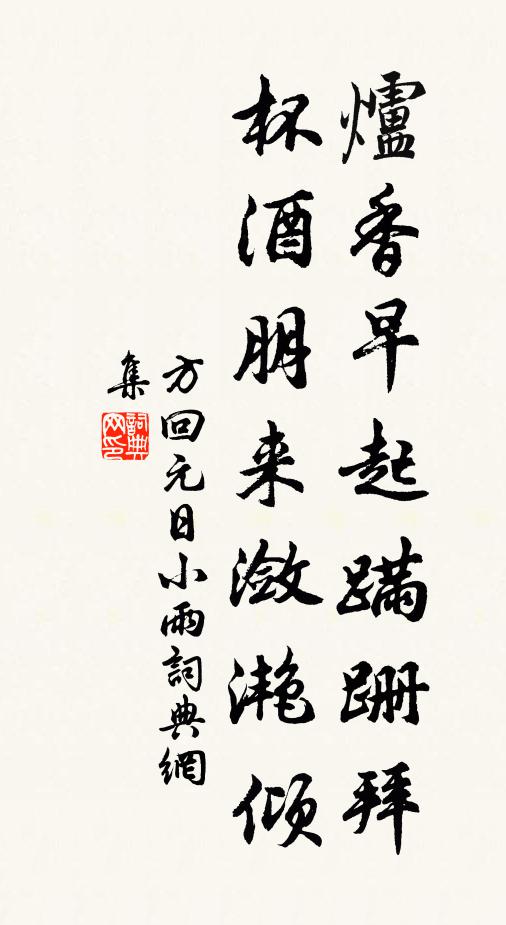 爐香早起蹣跚拜
杯酒朋来潋滟倾
方回元日小雨詞典網
集
詞典网印